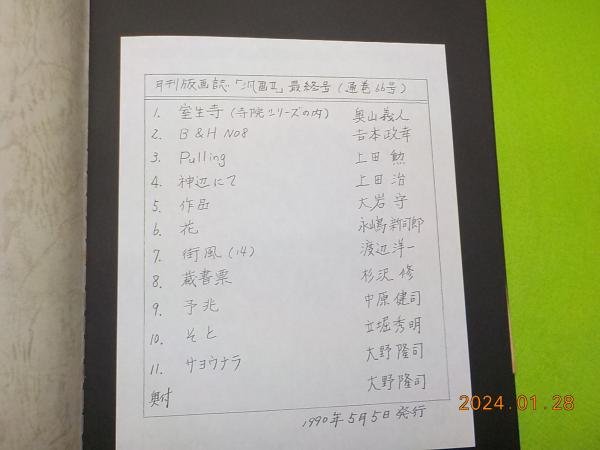 月刊版画誌「汎画Ⅱ」最終号(通巻66号)
1. 室生寺(寺院シリーズの内) 奥山義人
2. B&H No8 吉本政幸
3. Pulling 上田 勲
4. 神辺にて 上田 治
5. 作品 大岩 守
6. 花 永嶋新司郎
7. 街風(14) 渡辺洋一
8. 蔵書票 杉沢 修
9. 予兆 中原健司
10. そと 立堀秀明
11. サヨウナラ 大野隆司
奥付 大野隆司
1990年5月5日発行
2024.01.28